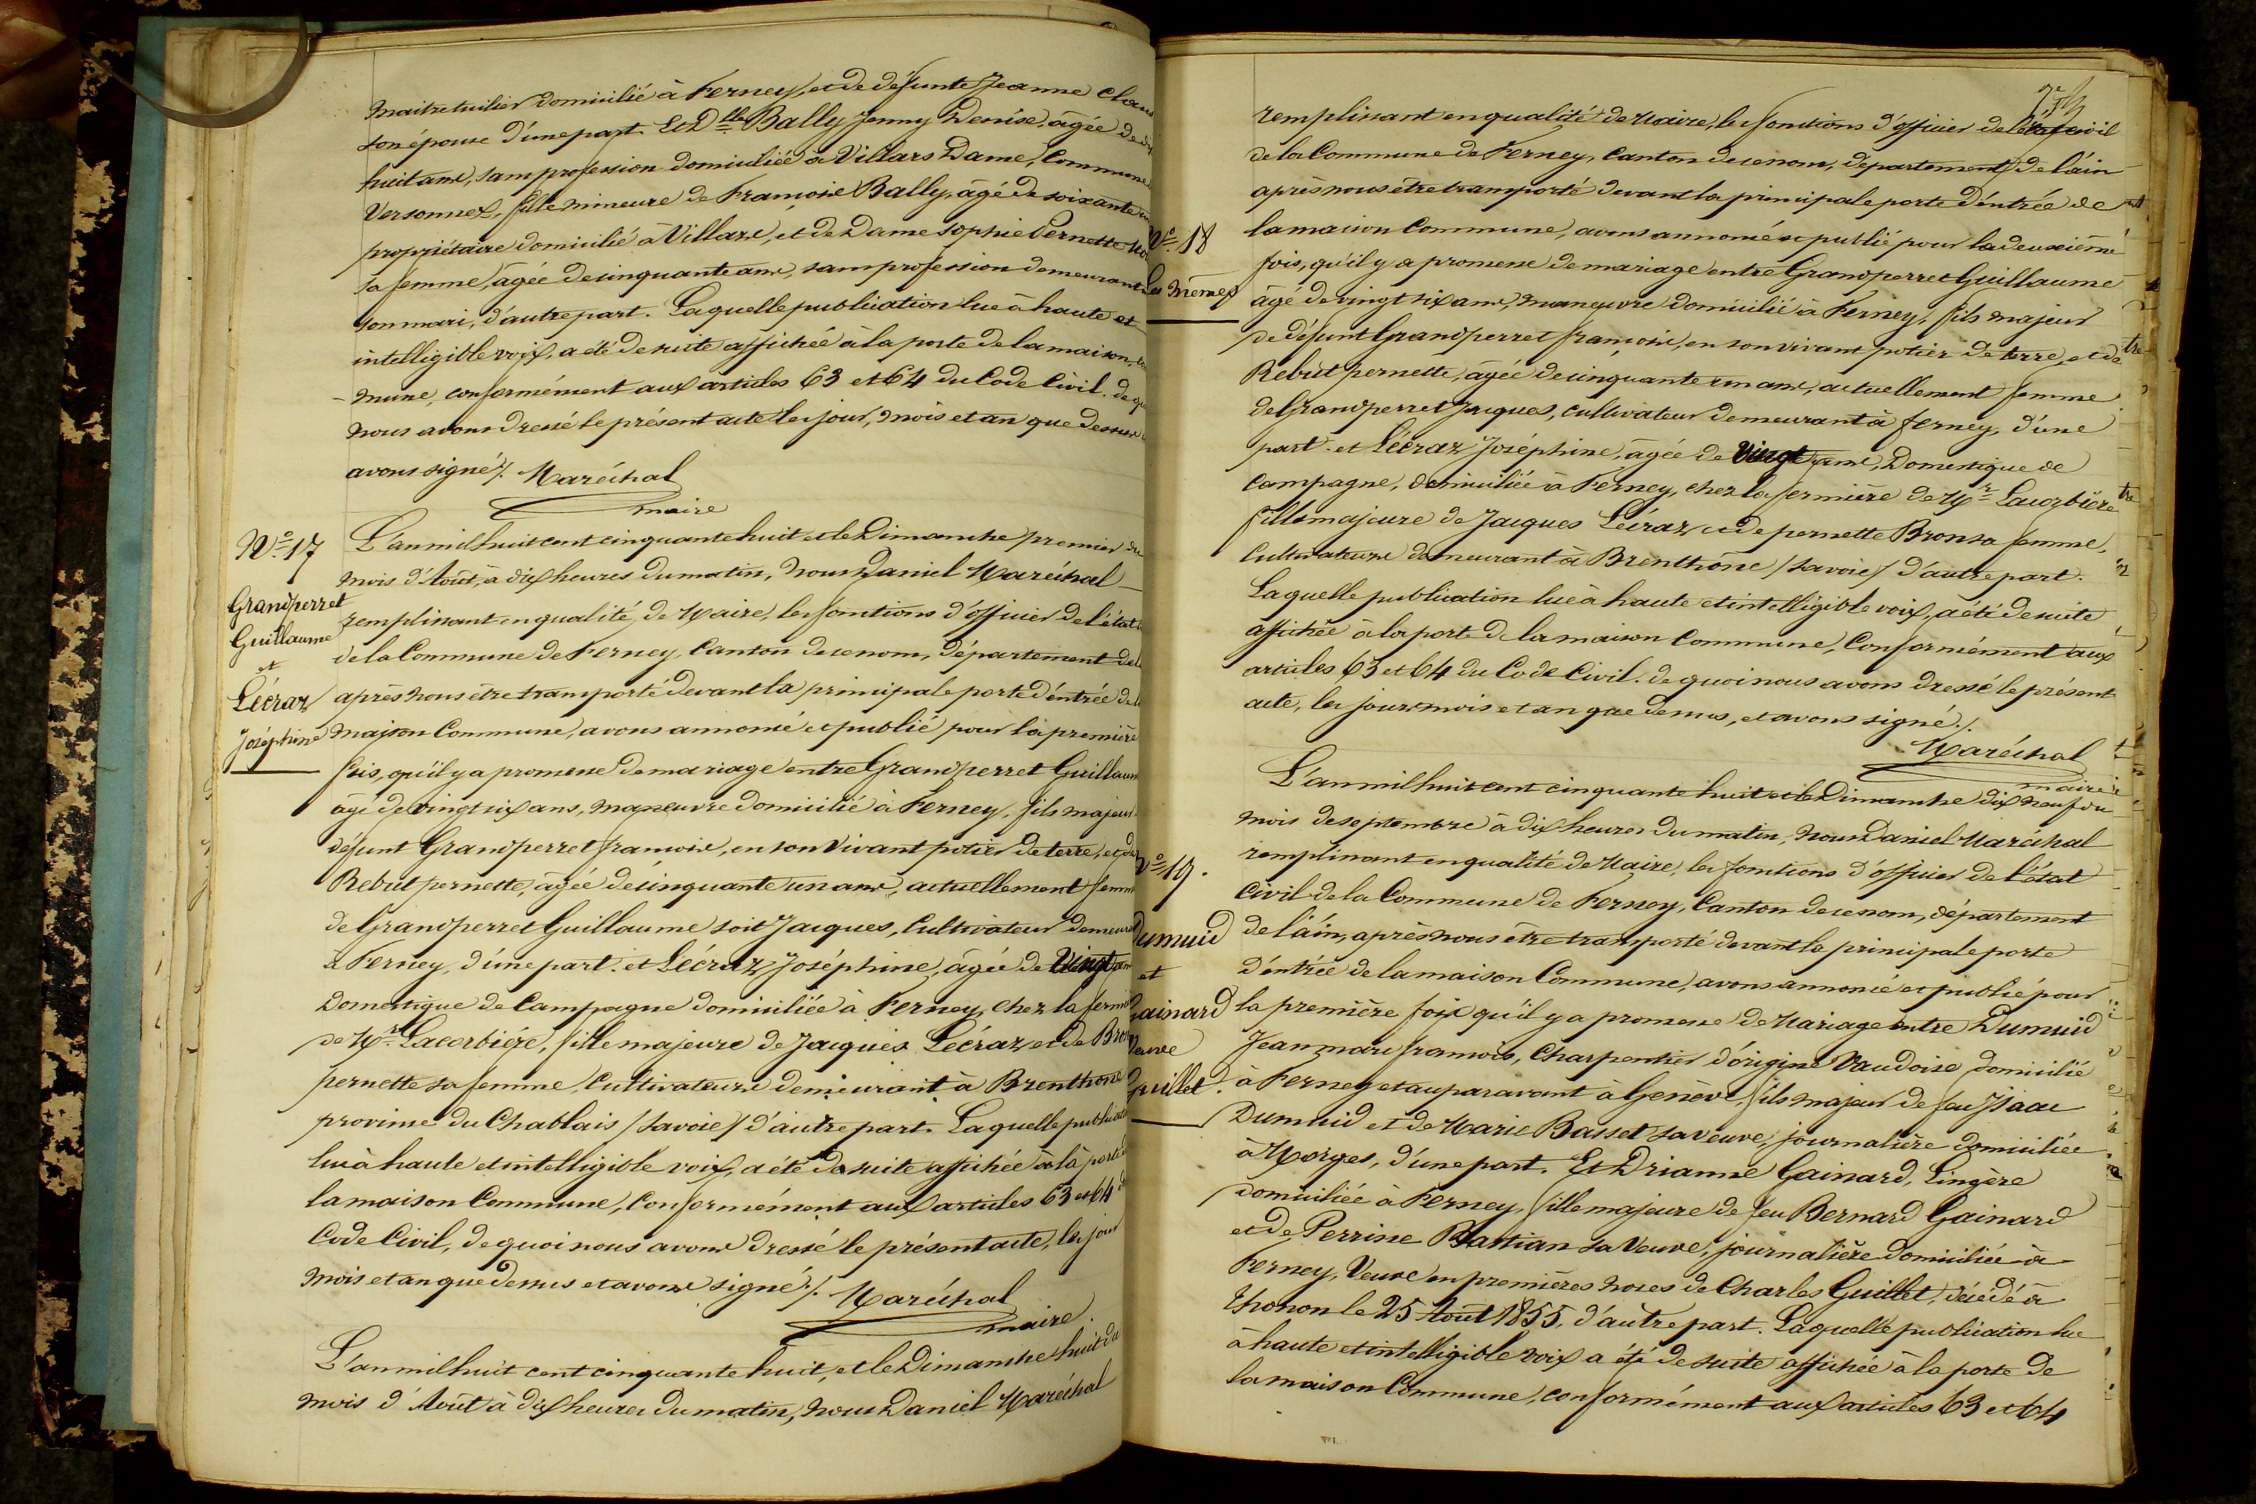 Maitre tuilier domicilié à Ferney, et de défunte Jeanne
son épouse d'une part. Et Dlle Bally Jenny Denise, âgée de dix
huit ans, sans profession domiciliée à Villars Dame, Commune
Versonnex, fille mineure de François Bally, âgé de soixante
propriétaire domicilié à Villars, et de Dame Sophie Pernette
sa femme, âgée de cinquante ans, sans profession demeurant
son mari, d'autre part. Laquelle publication lue à haute et
intelligible voix, a été de suite affichée à la porte de la maison
mune, conformément aux articles 63 et 64 du Code Civil. de
nous avons dressé le présent acte les jour, mois et an que dessus
avons signé /. Maréchal
maire
N° 17
Grandperret
Guillaume
et
Lécraz
Joséphine
L'an mil huit cent cinquante huit et le Dimanche premier du
mois d'Août, à dix heures du matin, Nous Daniel Maréchal
remplissant en qualité de Maire, les fonctions d'officier de l'état
de la Commune de Ferney, Canton de ce nom, département de
après nous être transporté devant la principale porte d'éntrée de
maison Commune, avons annoncé et publié pour la première
fois, qu'il y a promesse de mariage entre Grandperret Guillaume
âgé de vingt six ans, manœuvre domicilié à Ferney, fils majeur
défunt Grandperret françois, en son vivant potier de terre, et de
Rebut pernette, âgée de cinquante un ans, actuellement femme
de Grandperret Guillaume soit Jacques, Cultivateur demeurant
à Ferney, d'une part. et Lécraz Joséphine, âgée de Vingt ans
Domestique de Campagne domiciliée à Ferney, chez la fermière
de Mr. Lacorbière, fille majeure de Jacques Lécraz et de Bron
pernette sa femme, Cultivateurs demeurant à Brenthone
province du Chablais / Savoie / d'autre part. Laquelle publication
lue à haute et intelligible voix, a été de suite affichée à la porte
la maison Commune, Conformément aux articles 63 et 64
Code Civil, de quoi nous avons dressé le présent acte, les jour
mois et an que dessus et avons signé /. Maréchal
maire.
L'an mil huit cent cinquante huit, et le Dimanche huit du
mois d'Août à dix heures du matin, nous Daniel Maréchal
N° 18
Les mêmes
remplissant en qualité de Maire, les fonctions d'officier de l'état civil
de la Commune de Ferney, Canton de ce nom, département de l'ain
après nous être transporté devant la principale porte d'éntrée de
la maison Commune, avons annoncé et publié pour la deuxième
fois, qu'il y a promesse de mariage entre Grandperret Guillaume
âgé de vingt six ans, manœuvre domicilié à Ferney, fils majeur
de défunt Grandperret françois, en son vivant potier de terre, et de
Rebut pernette, âgée de cinquante un ans, actuellement femme
de Grandperret Jacques, cultivateur demeurant à ferney, d'une
part. et Lécraz Joséphine, âgée de Vingt ans, Domestique de
Campagne, domiciliée à Ferney, chez la fermière de Mr. Lacorbière
fille majeure de Jacques Lécraz et de pernette Bron sa femme,
Cultivateurs demeurant à Brenthône / Savoie / d'autre part.
Laquelle publication lue à haute et intelligible voix, a été de suite
affichée à la porte de la maison Commune, Conformément aux
articles 63 et 64 du Code Civil. de quoi nous avons dressé le présent
acte, les jour mois et an que dessus, et avons signé /.
Maréchal
maire
N° 19.
Dumuid
et
Gainard
Veuve
Guillet.
L'an mil huit cent cinquante huit et le Dimanche dix neuf du
mois de septembre à dix heures du matin, nous Daniel Maréchal
remplissant en qualité de Maire, les fonctions d'officier de l'état
Civil de la Commune de Ferney, Canton de ce nom, département
de l'ain, après nous être transporté devant la principale porte
d'éntrée de la maison Commune, avons annoncé et publié pour
la première fois qu'il y a promesse de Mariage entre Dumuid
Jean marc françois, Charpentier d'origine Vaudoise domicilié
à Ferney et auparavant à Genève, fils majeur de feu Isaac
Dumuid et de Marie Basset sa veuve, journalière domiciliée
à Morges, d'une part. Et Drianne Gainard, Lingère
domiciliée à Ferney, fille majeure de feu Bernard Gainard
et de Perrine Bastian sa Veuve, journalière domiciliée à
Ferney, Veuve en premières noces de Charles Guillet, décédé à
Thonon le 25 Août 1855, d'autre part. Laquelle publication lue
à haute et intelligible voix a été de suite affichée à la porte de
la maison Commune, conformément aux articles 63 et 64